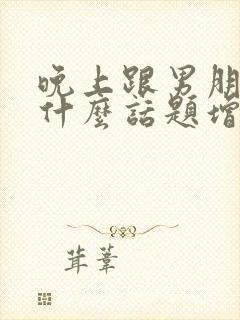 晚上跟男朋
什麼話題增
茸葦